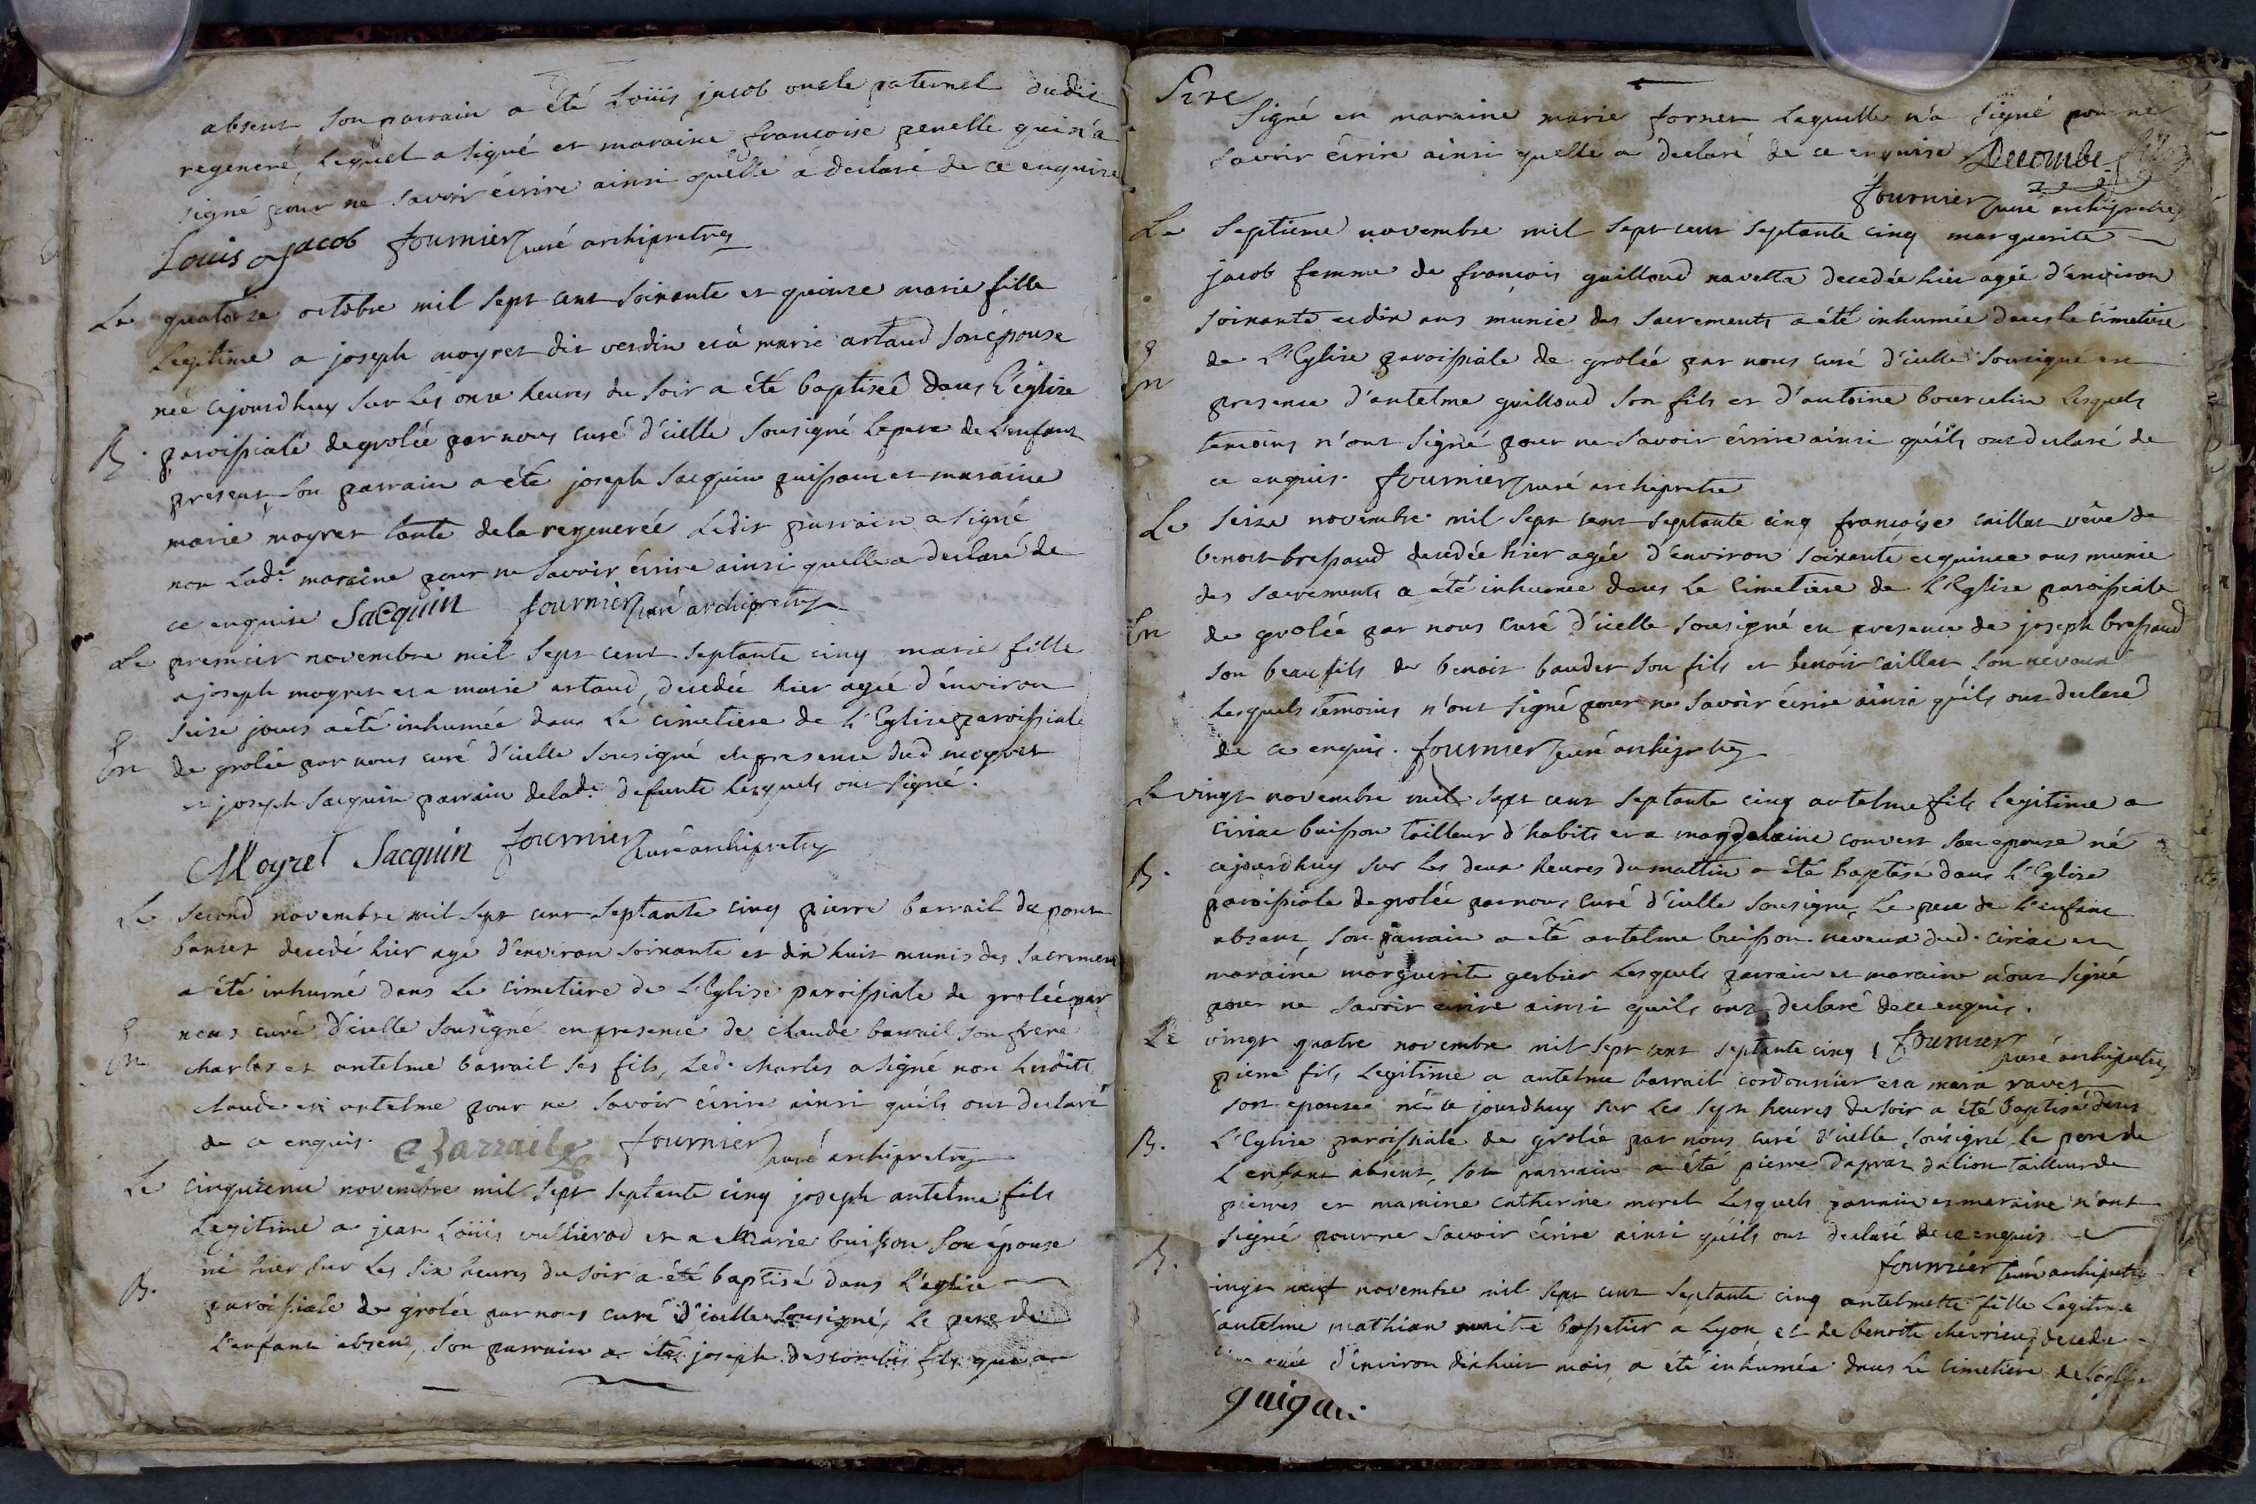 absent son parrain a été Loüis jacob oncle paternel dudit
regeneré, lequel a signé et maraine francoise penelle qui n'a
signé pour ne savoir écrire ainsi qu'elle a declaré de ce enquise
Louis jacob fournier curé archipretre
Le quatorze octobre mil sept cent soixante et quinze marie fille
Legitime a joseph moyret dit verdin et à marie artaud son épouse
née cejourdhuy sur les onze heures du soir a été baptisée dans l'église
B. paroissiale de grolée par nous curé d'icelle sousigné le pere de l'enfant
present, son parrain a été joseph sacquin puissant et maraine
marie moyret tante de la regenerée ledit parrain a signé
non lade maraine pour ne savoir écrire ainsi quelle a declaré de
ce enquise Sacquin fournier curé archipretre
Le premier novembre mil sept cent septante cinq marie fille
a joseph moyret et a marie artaud, decedée hier agée d'environ
seize jours a été inhumée dans le cimetiere de l'Eglise paroissiale
En de grolée par nous curé d'icelle sousigné en presence dud moyret
et joseph sacquin parrain de lade defunte lesquels ont signé.
Moyret Sacquin fournier curé archipretre
Le second novembre mil sept cent septante cinq pierre barrail du pont
bancet decedé hier agé d'environ soixante et dix huit munis des sacremens
a été inhumé dans le cimetiere de l'Eglise paroissiale de grolée par
En nous curé d'icelle sousigné en presence de claude barrail son frere
charles et antelme barrail ses fils, led. charles a signé non lesdits
claude et antelme pour ne savoir écrire ainsi qu'ils ont declaré
de ce enquis. C Barrail fournier curé archipretre
Le cinquieme novembre mil sept septante cinq joseph antelme fils
Legitime a jean Loüis vullierod et a Marie buisson son épouse
né hier sur les six heures du soir a été baptisé dans l'église
B. paroissiale de grolée par nous curé d'icelle sousigné, le pere de
l'enfant absent, son parrain a été joseph descombes fils qui a
Signé et maraine marie forner laquelle n'a signé pour ne
savoir écrire ainsi quelle a declaré de ce enquise Decombe fils
fournier curé archipretre
Le septieme novembre mil sept cent septante cinq marguerite
jacob femme de francois guilloud navetta decedée hier agée d'environ
soixante et dix ans munie des sacrements a été inhumée dans le cimetiere
En de l'Eglise paroissiale de grolée par nous curé d'icelle sousigné en
presence d'antelme guilloud son fils et d'antoine bourcelin lesquels
temoins n'ont signé pour ne savoir écrire ainsi qu'ils ont declaré de
ce enquis. fournier curé archipretre
Le seize novembre mil sept cent septante cinq francoise caillat vêve de
benoit bressaud decedée hier agée d'environ soixante et quinze ans munie
des sacrements a été inhumée dans le cimetiere de l'Eglise paroissiale
En de grolée par nous curé d'icelle sousigné en presence de joseph bressaud
son beau fils de benoit baudet son fils et benoit caillat son neveux
lesquels temoins n'ont signé pour ne savoir écrire ainsi qu'ils ont declaré
de ce enquis. fournier curé archipretre
Le vingt novembre mil sept cent septante cinq antelme fils legitime a
ciriac buisson tailleur d'habits et a magdelaine convert son epouse né
B. cejourdhuy sur les deux heures du mattin a été baptisé dans l'Eglise
paroissiale de grolée par nous curé d'icelle sousigné, le pere de l'enfant
absent, son parrain a été antelme buisson neveux dud. ciriac et
maraine marguerite gerbier lesquels parrain et maraine n'ont signé
pour ne savoir ecrire ainsi qu'ils ont declaré de ce enquis.
Le vingt quatre novembre mil sept cent septante cinq fournier curé archipretre
pierre fils Legitime a antelme barrail cordonnier et a marie ravet
son epouse né ce jourdhuy sur les sept heures du soir a été baptisé dans
B. l'Eglise paroissiale de grolée par nous curé d'icelle sousigné le pere de
l'enfant absent, son parrain a été pierre dapraz dalion tailleur de
pierres et maraine catherine morel lesquels parrain et maraine n'ont
signé pour ne savoir écrire ainsi qu'ils ont declaré de ce enquis
fournier curé archipretre
B. ingt neuf novembre mil sept cent septante cinq antelmette fille legitime
antelme mathian papetier a Lyon et de benoite chevrieu, decedée
agée d'environ dixhuit mois a été inhumée dans le cimetiere de l'Eglise
guigar